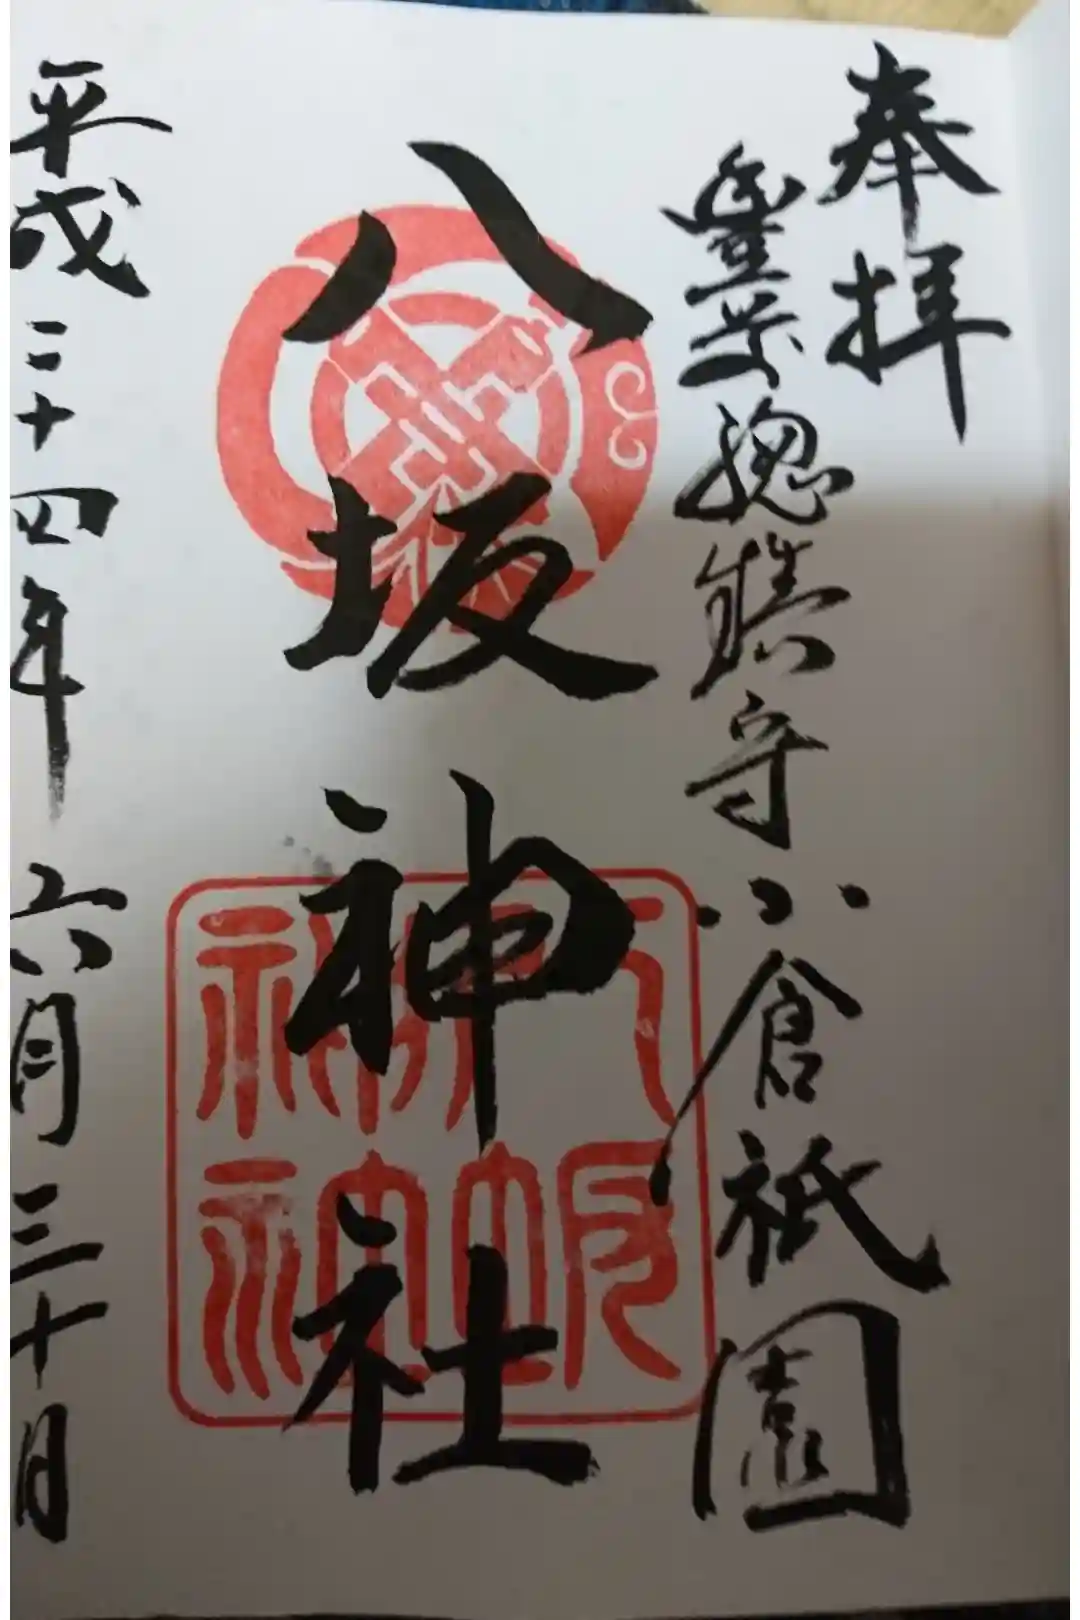 奉拝
豐前總鎮守小倉祇園
八坂神社
平成二十四年六月三十日